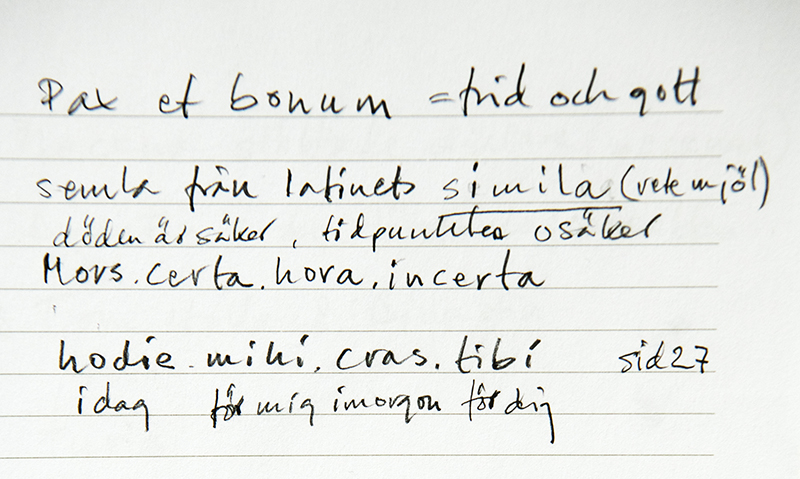 Pax et bonum = frid och gott
semla från latinets simila (vetemjöl)
döden är säker, tidpunkten osäker
Mors.certa.hora.incerta
hodie.mihi.cras.tibi sid 27
idag för mig imorgon för dig